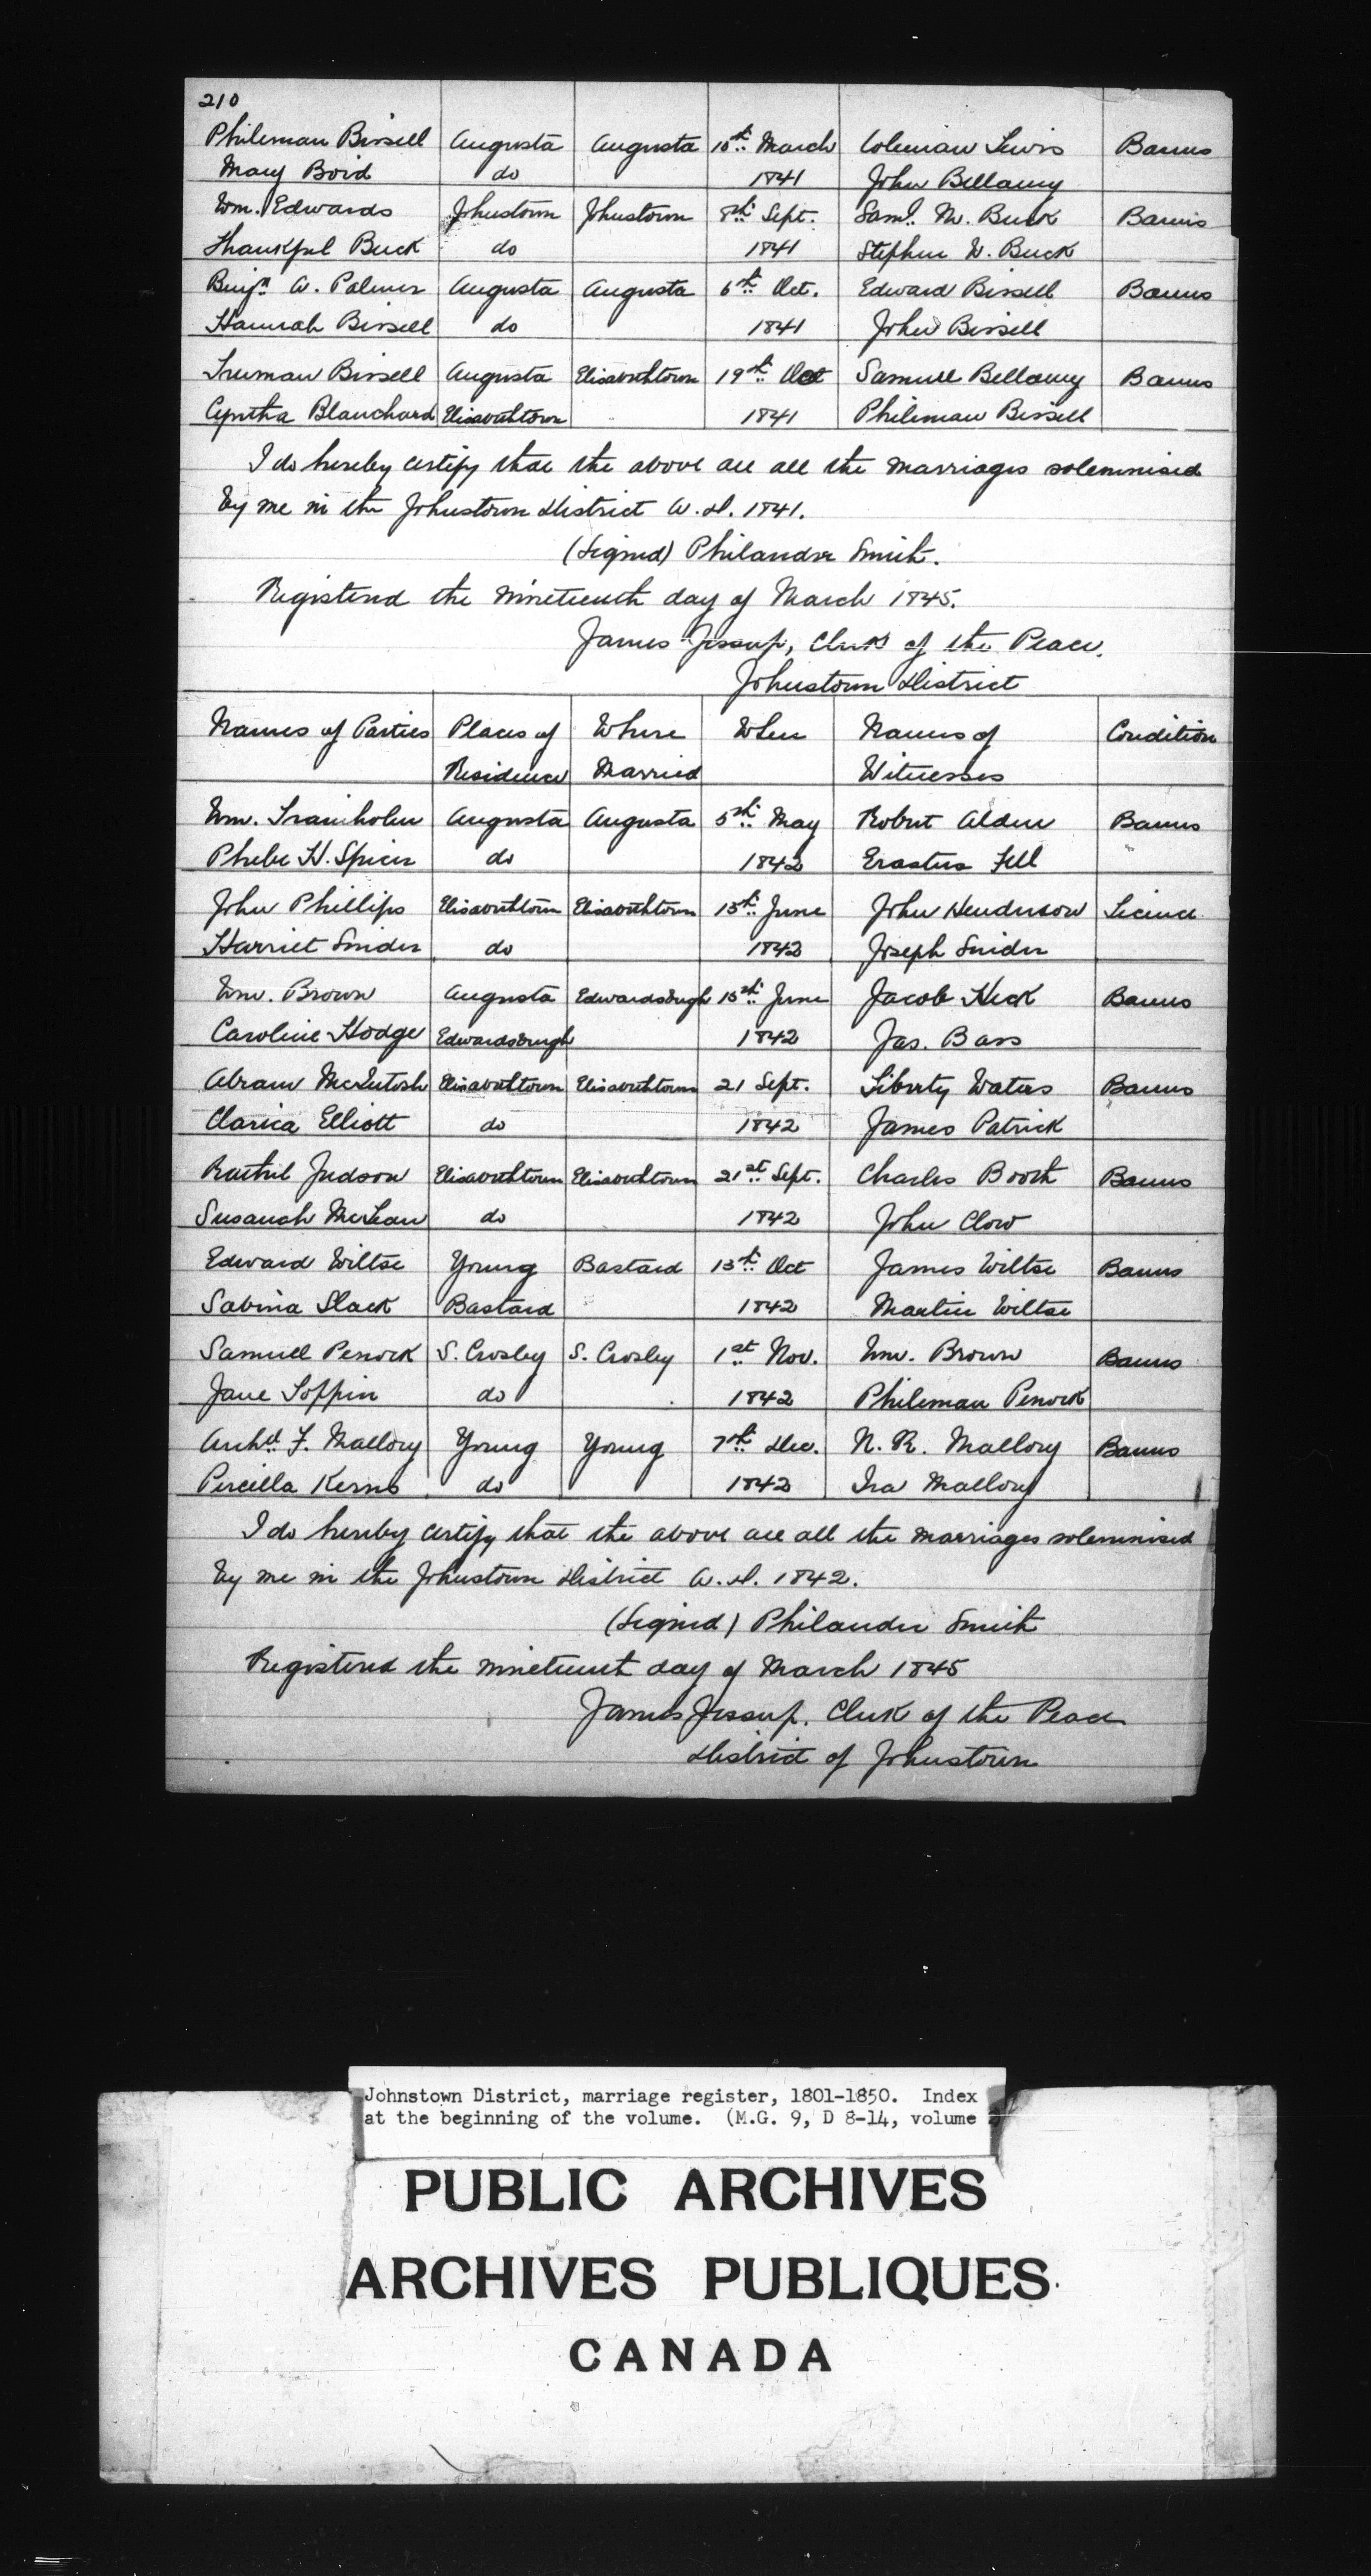 210
Phileman Bissell Augusta Augusta 15th March Coleman Lewis Banns
Mary Boid do 1841 John Bellamy
Wm. Edwards Johnstown Johnstown 8th Sept. Saml. M. Buck Banns
Thankful Buck do 1841 Stephen W. Buck
Benjn A. Palmer Augusta Augusta 6th Oct. Edward Bissell Banns
Hannah Bissell do 1841 John Bissell
Truman Bissell Augusta Elisabethtown 19th Oct Samuel Bellamy Banns
Cyntha Blanchard Elisabethtown 1841 Phileman Bissell
I do hereby certify that the above are all the marriages solemnised
by me in the Johnstown District A.D. 1841.
(Signed) Philander Smith.
Registered the nineteenth day of March 1845.
James Jessup, Clerk of the Peace.
Johnstown District
Names of Parties Places of Where When Names of Condition
Residence Married Witnesses
Wm. Augusta Augusta 5th May Robert Alden Banns
Phebe H. Spicer do 1842 Erastus Fell
John Phillips Elisabethtown Elisabethtown 15th June John Henderson Licence
Harriet Snider do 1842 Joseph Snider
Wm. Brown Augusta Edwardsburgh 15th June Jacob Heck Banns
Caroline Hodge Edwardsburgh 1842 Jas. Bass
Abram McIntosh Elisabethtown Elisabethtown 21 Sept. Liberty Waters Banns
Clarica Elliott do 1842 James Patrick
Judson Elisabethtown Elisabethtown 21st Sept. Charles Booth Banns
Susanah McLean do 1842 John Clow
Edward Wiltse Young Bastard 13th Oct James Wiltse Banns
Sabina Slack Bastard 1842 Martin Wiltse
Samuel Penock S. Crosby S. Crosby 1st Nov. Wm. Brown Banns
Jane Soppin do 1842 Phileman Penock
Archd. F. Mallory Young Young 7th Dec. N. R. Mallory Banns
Percilla Kerns do 1842 Ira Mallory
I do hereby certify that the above are all the marriages solemnised
by me in the Johnstown District A.D. 1842.
(Signed) Philander Smith
Registered the nineteenth day of March 1845
James Jessup. Clerk of the Peace
District of Johnstown
Johnstown District, marriage register, 1801-1850. Index
at the beginning of the volume. (M.G. 9, D 8-14, volume
PUBLIC ARCHIVES
ARCHIVES PUBLIQUES
CANADA